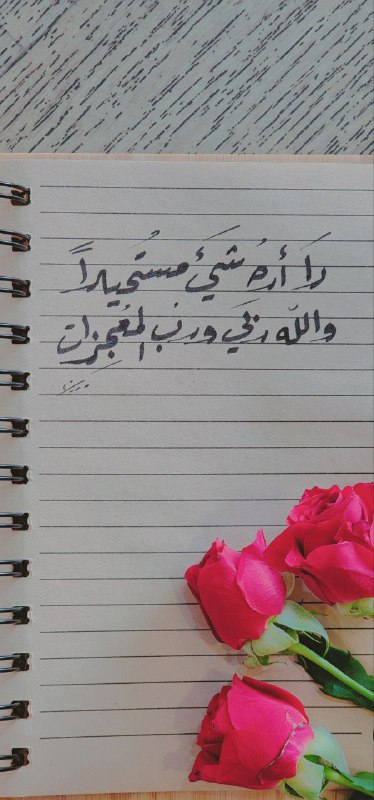 لا أراه شيئ مستحيلاً
والله ربي ورب المعجزات